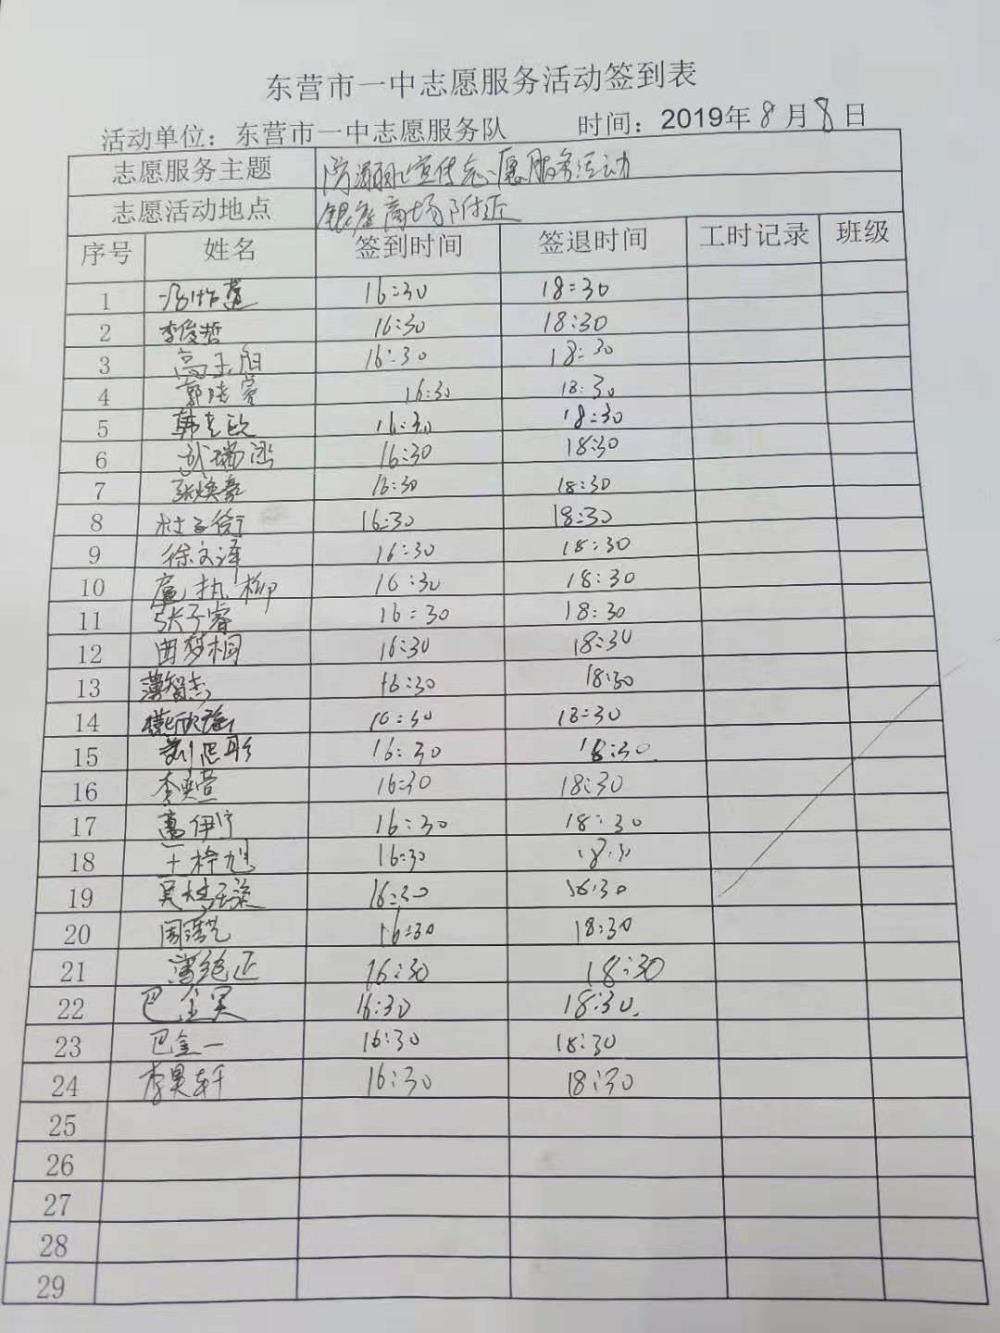 东营市一中志愿服务活动签到表
活动单位：东营市一中志愿服务队 时间：2019年8月8日
志愿服务主题 防溺水宣传志愿服务活动
志愿活动地点 银座商场附近
序号 姓名 签到时间 签退时间 工时记录 班级
1 16:30 18:30
2 李俊哲 16:30 18:30
3 16:30 18:30
4 16:30 18:30
5 16:30 18:30
6 武瑞涵 16:30 18:30
7 张焕豪 16:30 18:30
8 杜子衡 16:30 18:30
9 徐文泽 16:30 18:30
10 扈执柳 16:30 18:30
11 张子睿 16:30 18:30
12 曲梦桐 16:30 18:30
13 薄智志 16:30 18:30
14 16:30 18:30
15 刘思彤 16:30 18:30
16 李奕萱 16:30 18:30
17 伊宁 16:30 18:30
18 16:30 18:3
19 16:30 18:30
20 16:30 18:30
21 16:30 18:30
22 巴金昊 16:30 18:30.
23 巴金一 16:30 18:30
24 李昊轩 16:30 18:30
25
26
27
28
29